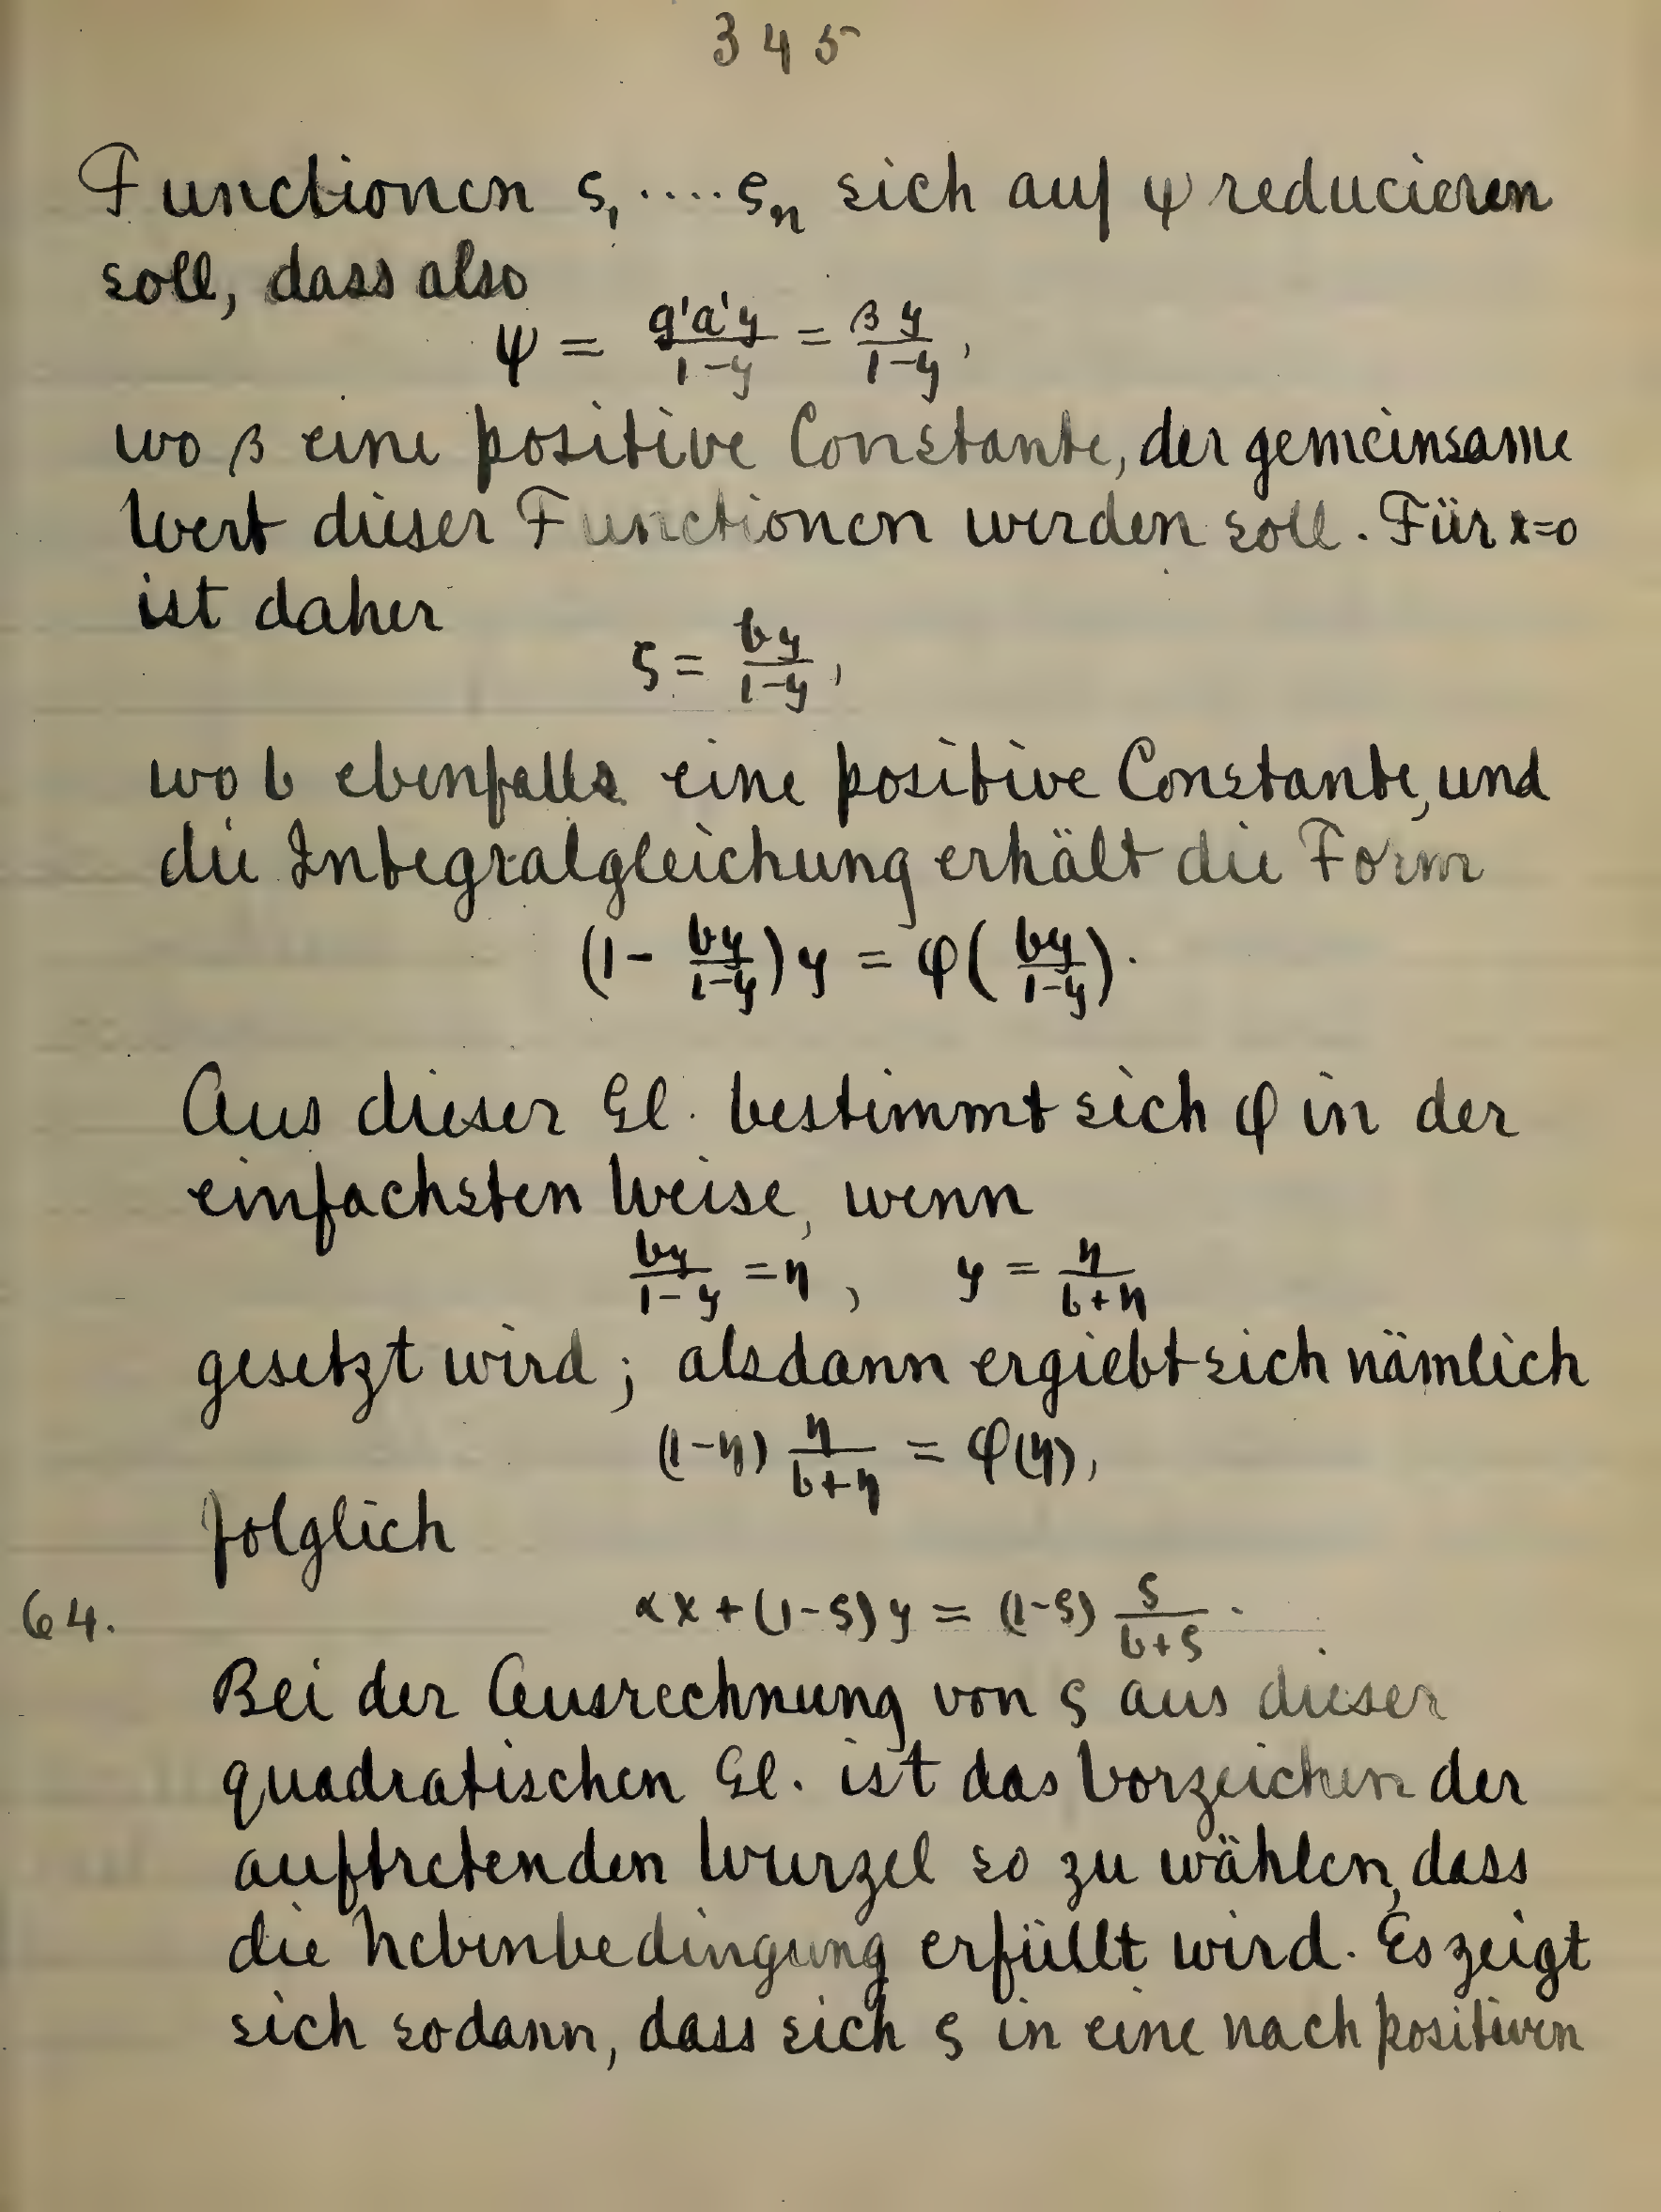 345
Functionen ς₁ ···· ς_n sich auf ψ reducieren
soll, dass also
ψ = g'a'y/(1-y) = βy/(1-y),
wo β eine positive Constante, der gemeinsame
Wert dieser Functionen werden soll. Für x=0
ist daher
ς = by/(1-y),
wo b ebenfalls eine positive Constante, und
die Integralgleichung erhält die Form
(1 - by/(1-y)) y = φ( by/(1-y) ).
Aus dieser Gl. bestimmt sich φ in der
einfachsten Weise, wenn
by/(1-y) = η, y = η/(b+η)
gesetzt wird; alsdann ergiebt sich nämlich
(1-η) η/(b+η) = φ(η),
folglich
64. αx + (1-ς) y = (1-ς) ς/(b+ς).
Bei der Ausrechnung von ς aus dieser
quadratischen Gl. ist das Vorzeichen der
auftretenden Wurzel so zu wählen, dass
die Nebenbedingung erfüllt wird. Es zeigt
sich sodann, dass sich ς in eine nach positiven